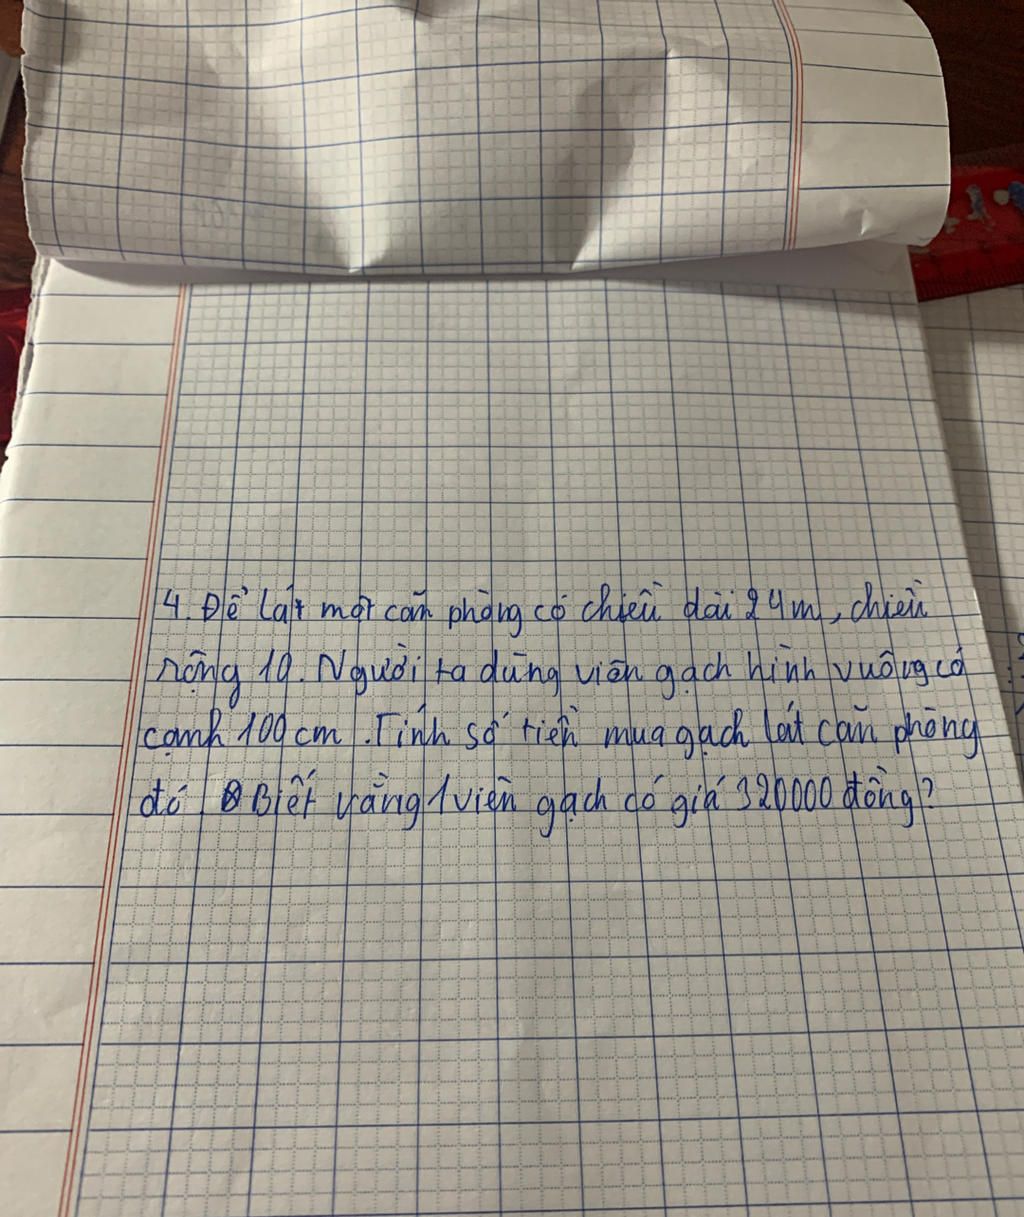 4. Để lát một căn phòng có chiều dài 24m, chiều
rộng 10. Người ta dùng viên gạch hình vuông có
cạnh 100 cm. Tính số tiền mua gạch lát căn phòng
đó. Biết rằng 1 viên gạch có giá 320000 đồng?